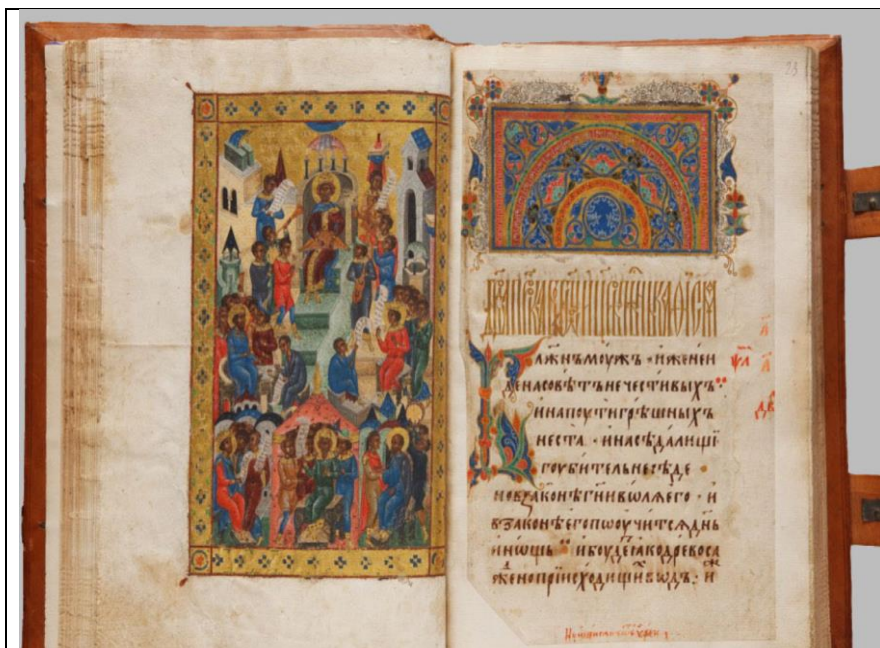 23
Блж҃нъмоужъ · иженеи
ѱл а҃
денасовѣтънечестивыхъ
инапоутигрѣшныхъ
дв
неста · инасѣдалищи
гоубительнесѣде
новзаконѣгн҃иволѧего · и
взаконѣегопѡоучитсѧдн҃ь
инѡщь ибоудеⷮꙗкодревоса
женоприисходищивѡдъ · и